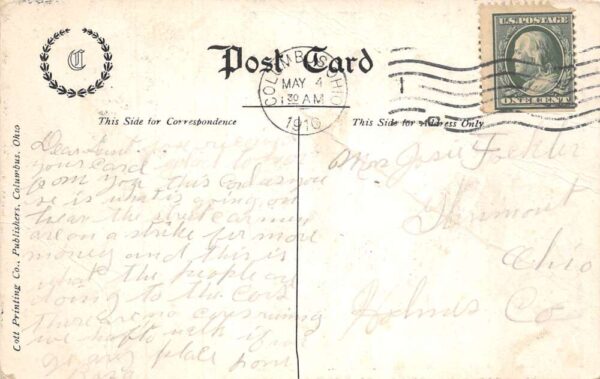 C
Post Card
COLUMBUS, OHIO
MAY 4
1 30 AM
1910
1
C
U.S. POSTAGE
ONE CENT
This Side for Correspondence
This Side for Address Only
Colt Printing Co., Publishers, Columbus, Ohio
Dear Aunt
your card
from you this card as you
se is what is going on
hear the street car men
are on a strike for more
money and this is
what the people are
doing to the cars
There are no cars running
we haft to walk if we
go any place from
Mrs Josie
Ohio
Holmes Co